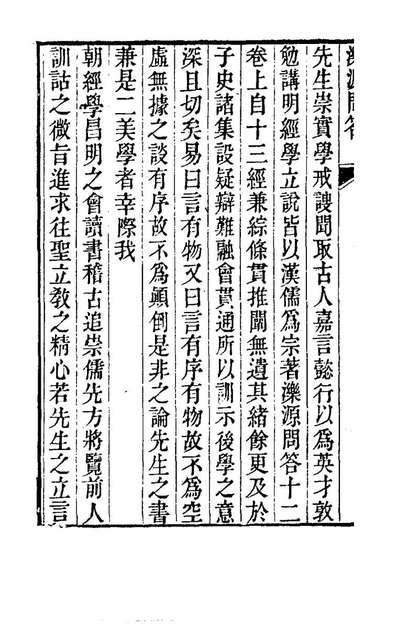 濼源問答
先生崇實學戒謏聞取古人嘉言懿行以為英才敦
勉講明經學立說皆以漢儒為宗著濼源問答十二
卷上自十三經兼綜條貫推闡無遺其緒餘更及於
子史諸集設疑辯難融會貫通所以訓示後學之意
深且切矣易曰言有物又曰言有序有物故不為空
虛無據之談有序故不為顚倒是非之論先生之書
兼是二美學者幸際我
朝經學昌明之會讀書稽古追崇儒先方將覽前人
訓詁之微旨進求往聖立敎之精心若先生之立言